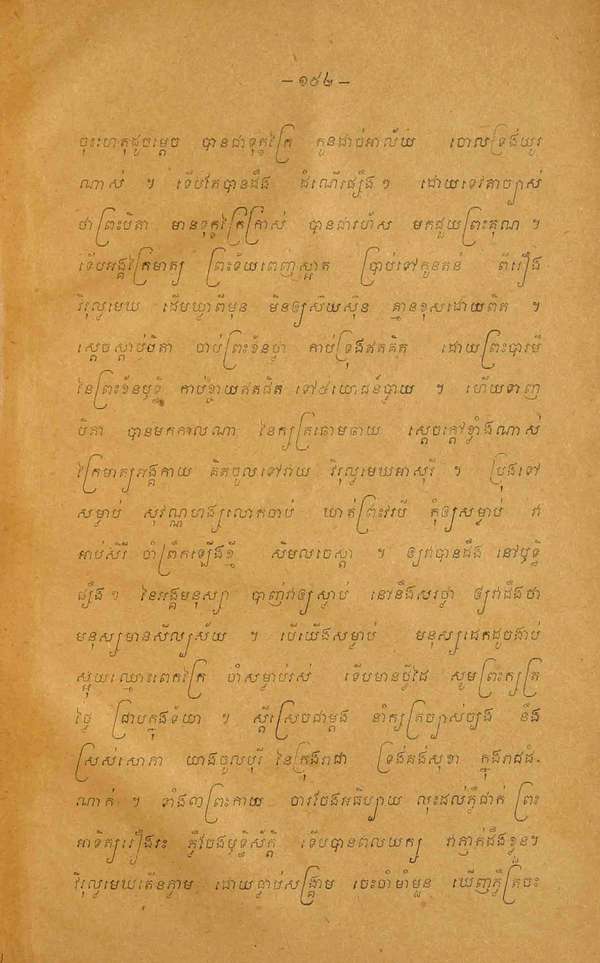 – ១៩៤ –
ចុះហេតុដូចម្តេច បានជាទុក្ខក្រៃ កូនដាច់អាល័យ ចោលទ្រង់យូរ
ណាស់ ។ ទើបតែបានដឹង ដំណើរផ្សឹងៗ ដោយទេវតាច្បាស់
ថាព្រះបិតា មានទុក្ខក្រៃក្រាស់ បានជារហ័ស មកជួយព្រះគុណ ។
ទើបអង្គក្រៃមាត្យ ព្រះទ័យពេញស្អាត ប្រាប់ទៅកូនតន់ ពីរឿង
វិរុល្ហមេឃ ដើមឃ្លាពីមុន មិនឲ្យសើយស៊ុន គ្មានខុសដោយពិត ។
ស្តេចស្តាប់បិតា ចាប់ព្រះខ័នថ្លា កាប់ទ្រុងឥតគិត ដោយព្រះបារមី
នៃព្រះខ័នឫទ្ធិ កាប់ខ្ចាយឥតជិត ទៅ៤យោជន៍ប្លាយ ។ ហើយទាញ
បិតា បានមកកាលណា នៃក្សត្រឆោមឆាយ ស្តេចក្តៅខ្លាំងណាស់
ក្រៃមាត្យអង្គកាយ គិតចូលទៅវាយ វិរុល្ហមេឃអាសុរី ។ ប្រុងទៅ
សម្លាប់ សុវណ្ណហង្សលោកចាប់ ឃាត់ព្រះវរបី កុំឲ្យសម្លាប់ វា
អាប់សិរី ចាំព្រឹកឡើងខ្ញុំ សឹមលចេស្តា ។ ឲ្យវាបានដឹង នៅឫទ្ធិ
ផ្សឹងៗ នៃអង្គមនុស្សា បាញ់វាឲ្យស្លាប់ នៅនឹងសរថ្លា ឲ្យវាដឹងថា
មនុស្សមានសីល្បស័យ ។ បើយើងសម្លាប់ មនុស្សដេកដូចងាប់
ស្អុយឈ្មោះពេកក្រៃ ចាំសម្លាប់រស់ ទើបមានថ្វីដៃ សូមព្រះក្សត្រ
ថ្លៃ ជ្រាបក្នុងទ័យា ។ ស្តីស្រេចជាម្តង នាំក្សត្រច្បាស់ច្បង នឹង
ស្រស់សោភា យាងចូលបុរី នៃក្រុងរាជា ទ្រង់គង់សុខា ក្នុងរាជដំ-
ណាក់ ។ ទាំង៣ព្រះកាយ ចារចែងអធិប្បាយ លុះដល់ភ្លឺជាក់ ព្រះ
អាទិត្យរឿងរះ ភ្លឺចែងឫទ្ធិស័ក្តិ ទើបបានពលយក្ស វាភ្ញាក់ដឹងខ្លួន។
វិរុល្ហមេឃតើនភ្លាម ដោយធ្លាប់សង្គ្រាម ចេះចាំមាំមួន ឃើញភ្លឺត្រចះ